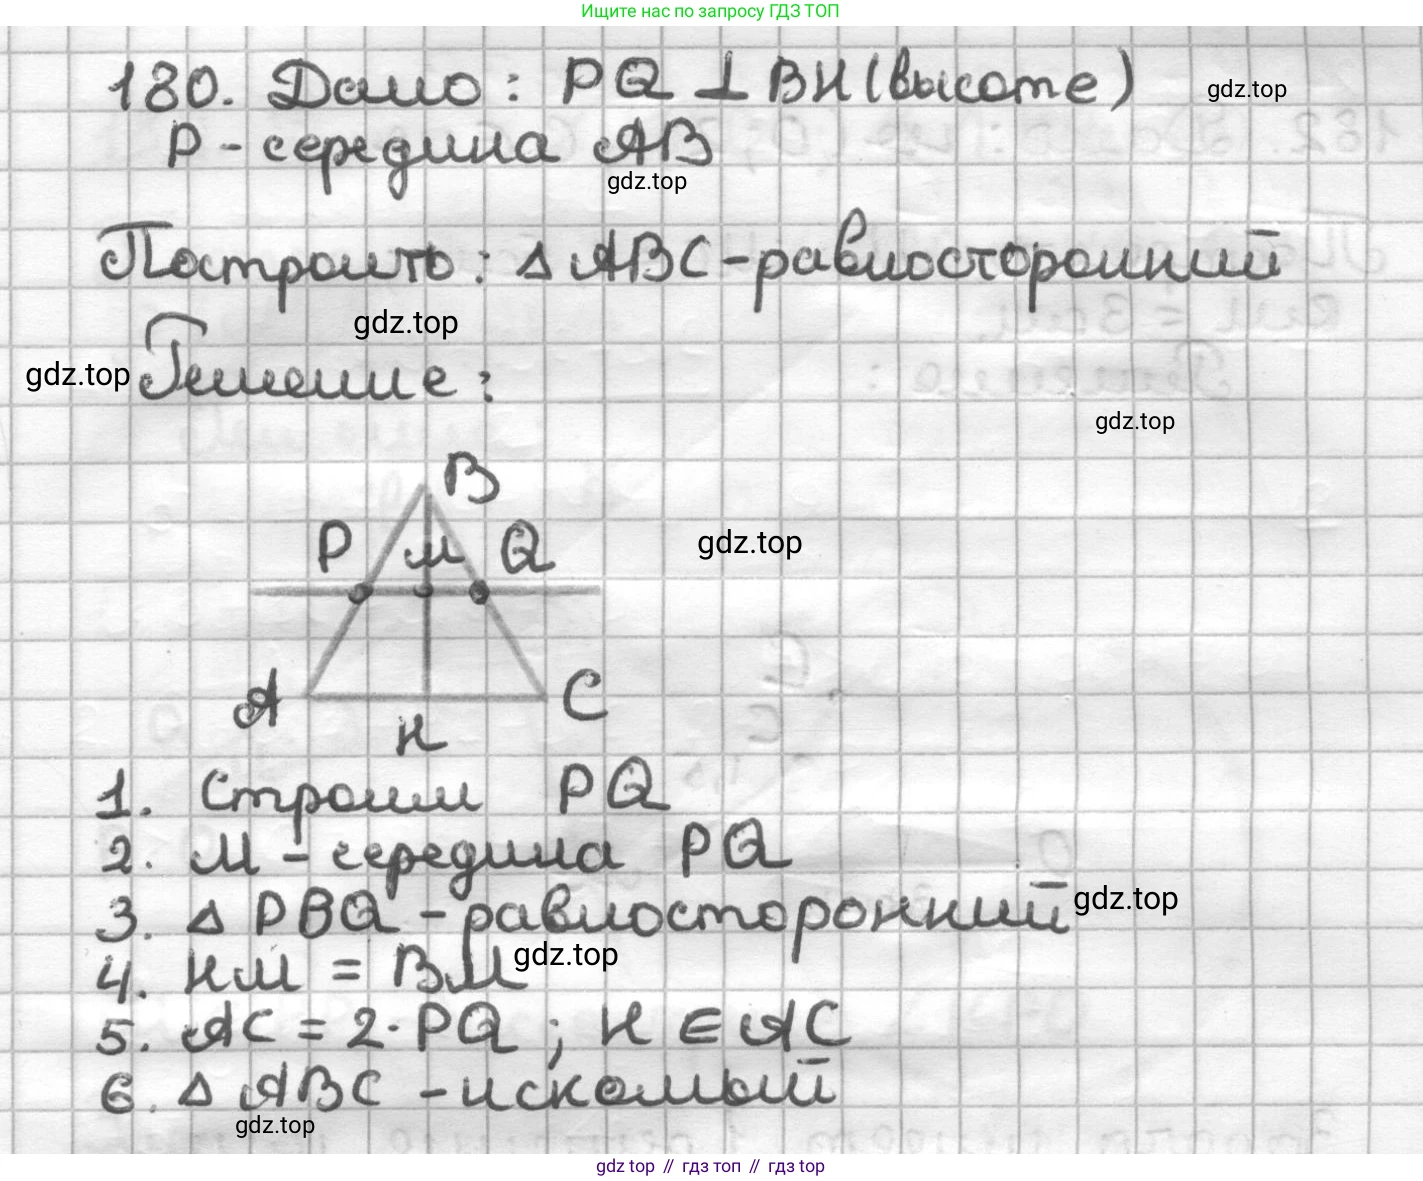 Ищите нас по запросу ГДЗ ТОП
180. Дано: PQ ⊥ BH (высоте)
gdz.top
P - середина AB
gdz.top
Построить: △ ABC - равносторонний
gdz.top
gdz.top
Решение:
gdz.top
B
P M Q
gdz.top
A H C
1. Строим PQ
2. M - середина PQ
3. △ PBQ - равносторонний
gdz.top
4. HM = BM
gdz.top
5. AC = 2·PQ; H ∈ AC
6. △ ABC - искомый
gdz.top
gdz top // гдз топ // гдз top